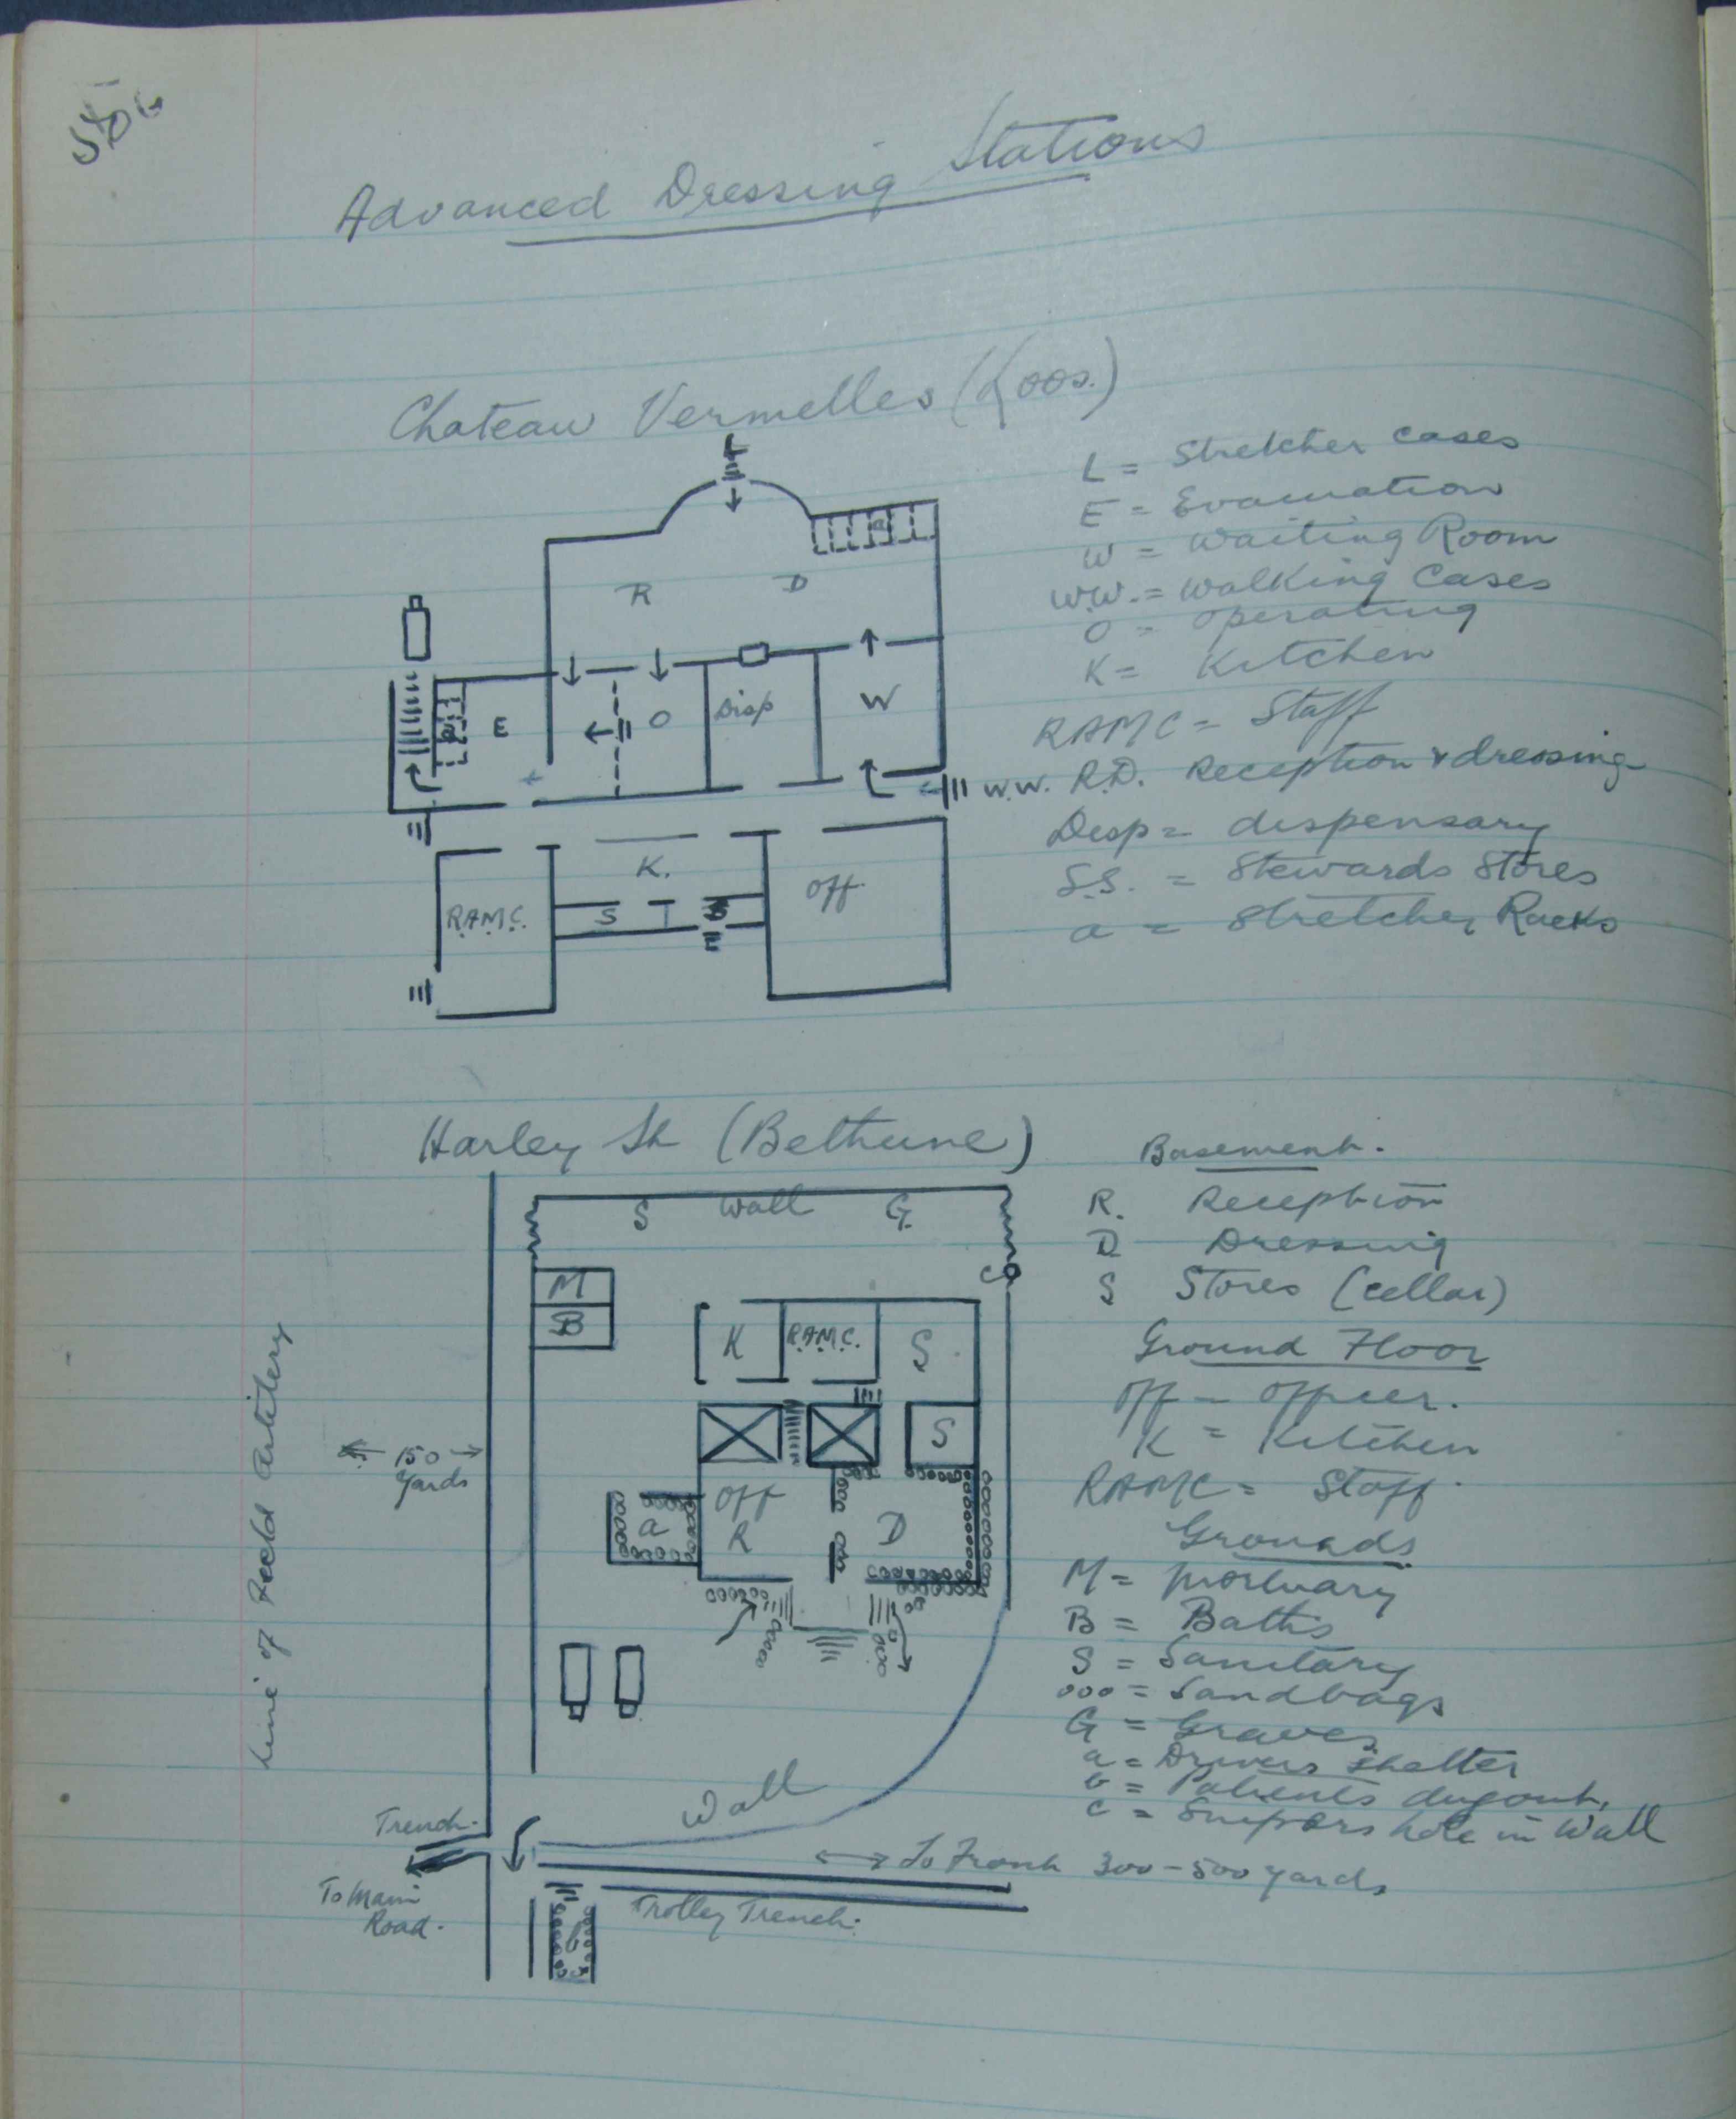 Advanced Dressing Stations
Chateau Vermelles (Loos.)
L
a
R D
E
a
O
Disp
W
W.W.
K.
R.A.M.C.
S
S
Off.
L = Stretcher cases
E = Evacuation
W = Waiting Room
W.W. = Walking Cases
O = Operating
K = Kitchen
RAMC = Staff
R.D. Reception & dressing
Disp = dispensary
S.S. = Stewards Stores
a = Stretcher Racks
Harley St (Bethune)
S Wall G.
M
B
c
K
R.A.M.C.
S
S
Off
R
D
a
150
yards
Line of Field Artillery
Wall
Trench.
To Main
Road.
To Front 300-500 yards
Trolley Trench.
b
Basement.
R. Reception
D Dressing
S Stores (cellar)
Ground Floor
Off = Officer.
K = Kitchen
RAMC = Staff.
Grounds
M = Mortuary
B = Baths
S = Sanitary
ooo = Sandbags
G = Graves
a = Drivers shelter
b = Patients dugout.
c = Snipers hole in Wall